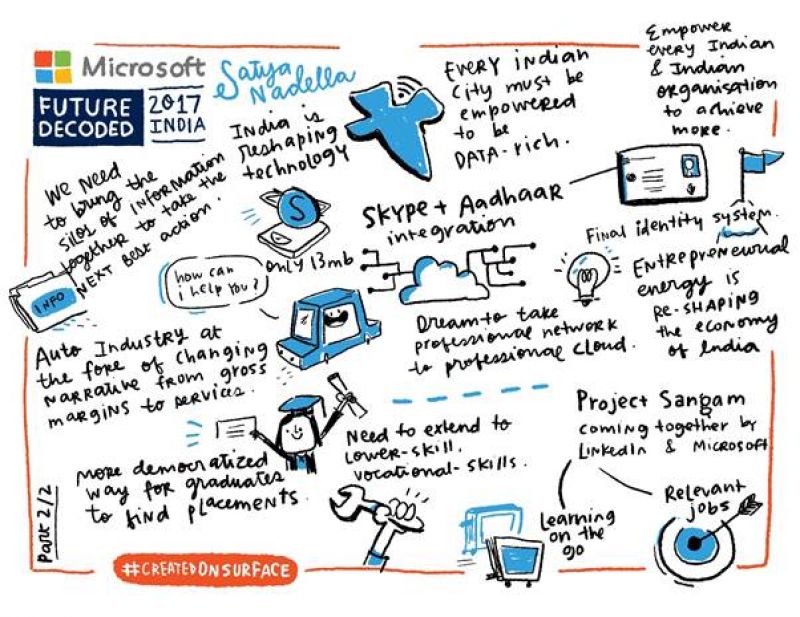 Microsoft
FUTURE
DECODED
2017
INDIA
Satya
Nadella
India is
reshaping
technology
EVERY indian
city must be
empowered
to be
DATA-rich.
Empower
every Indian
& Indian
organisation
to achieve
more.
WE NEED
to bring the
silos of information
together to take the
NEXT best action.
INFO
S
only 13mb
SKYPE + Aadhaar
integration
Final identity system.
how can
i help you?
Auto Industry at
the fore of changing
narrative from gross
margins to services.
Dream to take
professional network
to professional cloud.
ENTREPreneurial
energy is
RE-SHAPING
the economy
of India
more democratized
way for graduates
to find placements.
Need to extend to
lower-skill.
vocational-skills.
Project Sangam
coming together by
LinkedIn & Microsoft
Learning
on the
go
Relevant
jobs
PART 2/2
#CREATEDONSURFACE